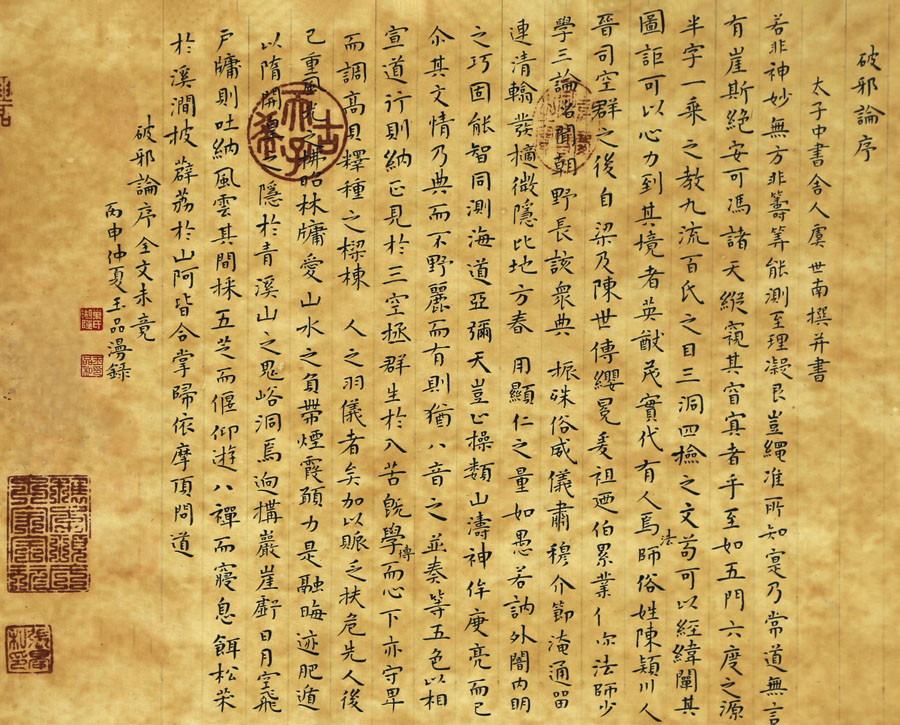 破邪論序
太子中書舍人虞世南撰并書
若非神妙無方非籌筭能測至理凝艮豈繩准所知寔乃常道無言
有崖斯絕安可馮諸天縱窺其窅寘者乎至如五門六度之源
半字一乘之教九流百氏之目三洞四檢之文苟可以經緯闡其
圖詎可以心力到其境者英猷茂實代有人焉法師俗姓陳潁川人
晉司空群之後自梁及陳世傳纓冕爰祖迺伯累業仁尔法師少
學三論名聞朝野長該衆典振殊俗威儀肅穆介節淹通留
連清翰發擿微隱比地方春用顯仁之量如愚若訥外闇內明
之巧固能智同測海道亞彌天豈止操類山濤神侔庾亮而已
尒其文情乃典而不野麗而有則猶八音之並奏等五色以相
宣道行則納正見於三空拯群生於八苦旣學博而心下亦守卑
而調高貝釋種之樑棟人之羽儀者矣加以賑乏扶危先人後
己重風光拂照林牖愛山水之負帶煙霞願力是融晦迹肥遁
以隋開皇隱於青溪山之鬼峪洞焉迥構巖崖虧日月空飛
戶牖則吐納風雲其間採五芝而偃仰遊八禪而寢息餌松苿
於溪澗披薜荔於山阿皆合掌歸依摩頂問道
破邪論序全文未竟
丙申仲夏玉品漫錄